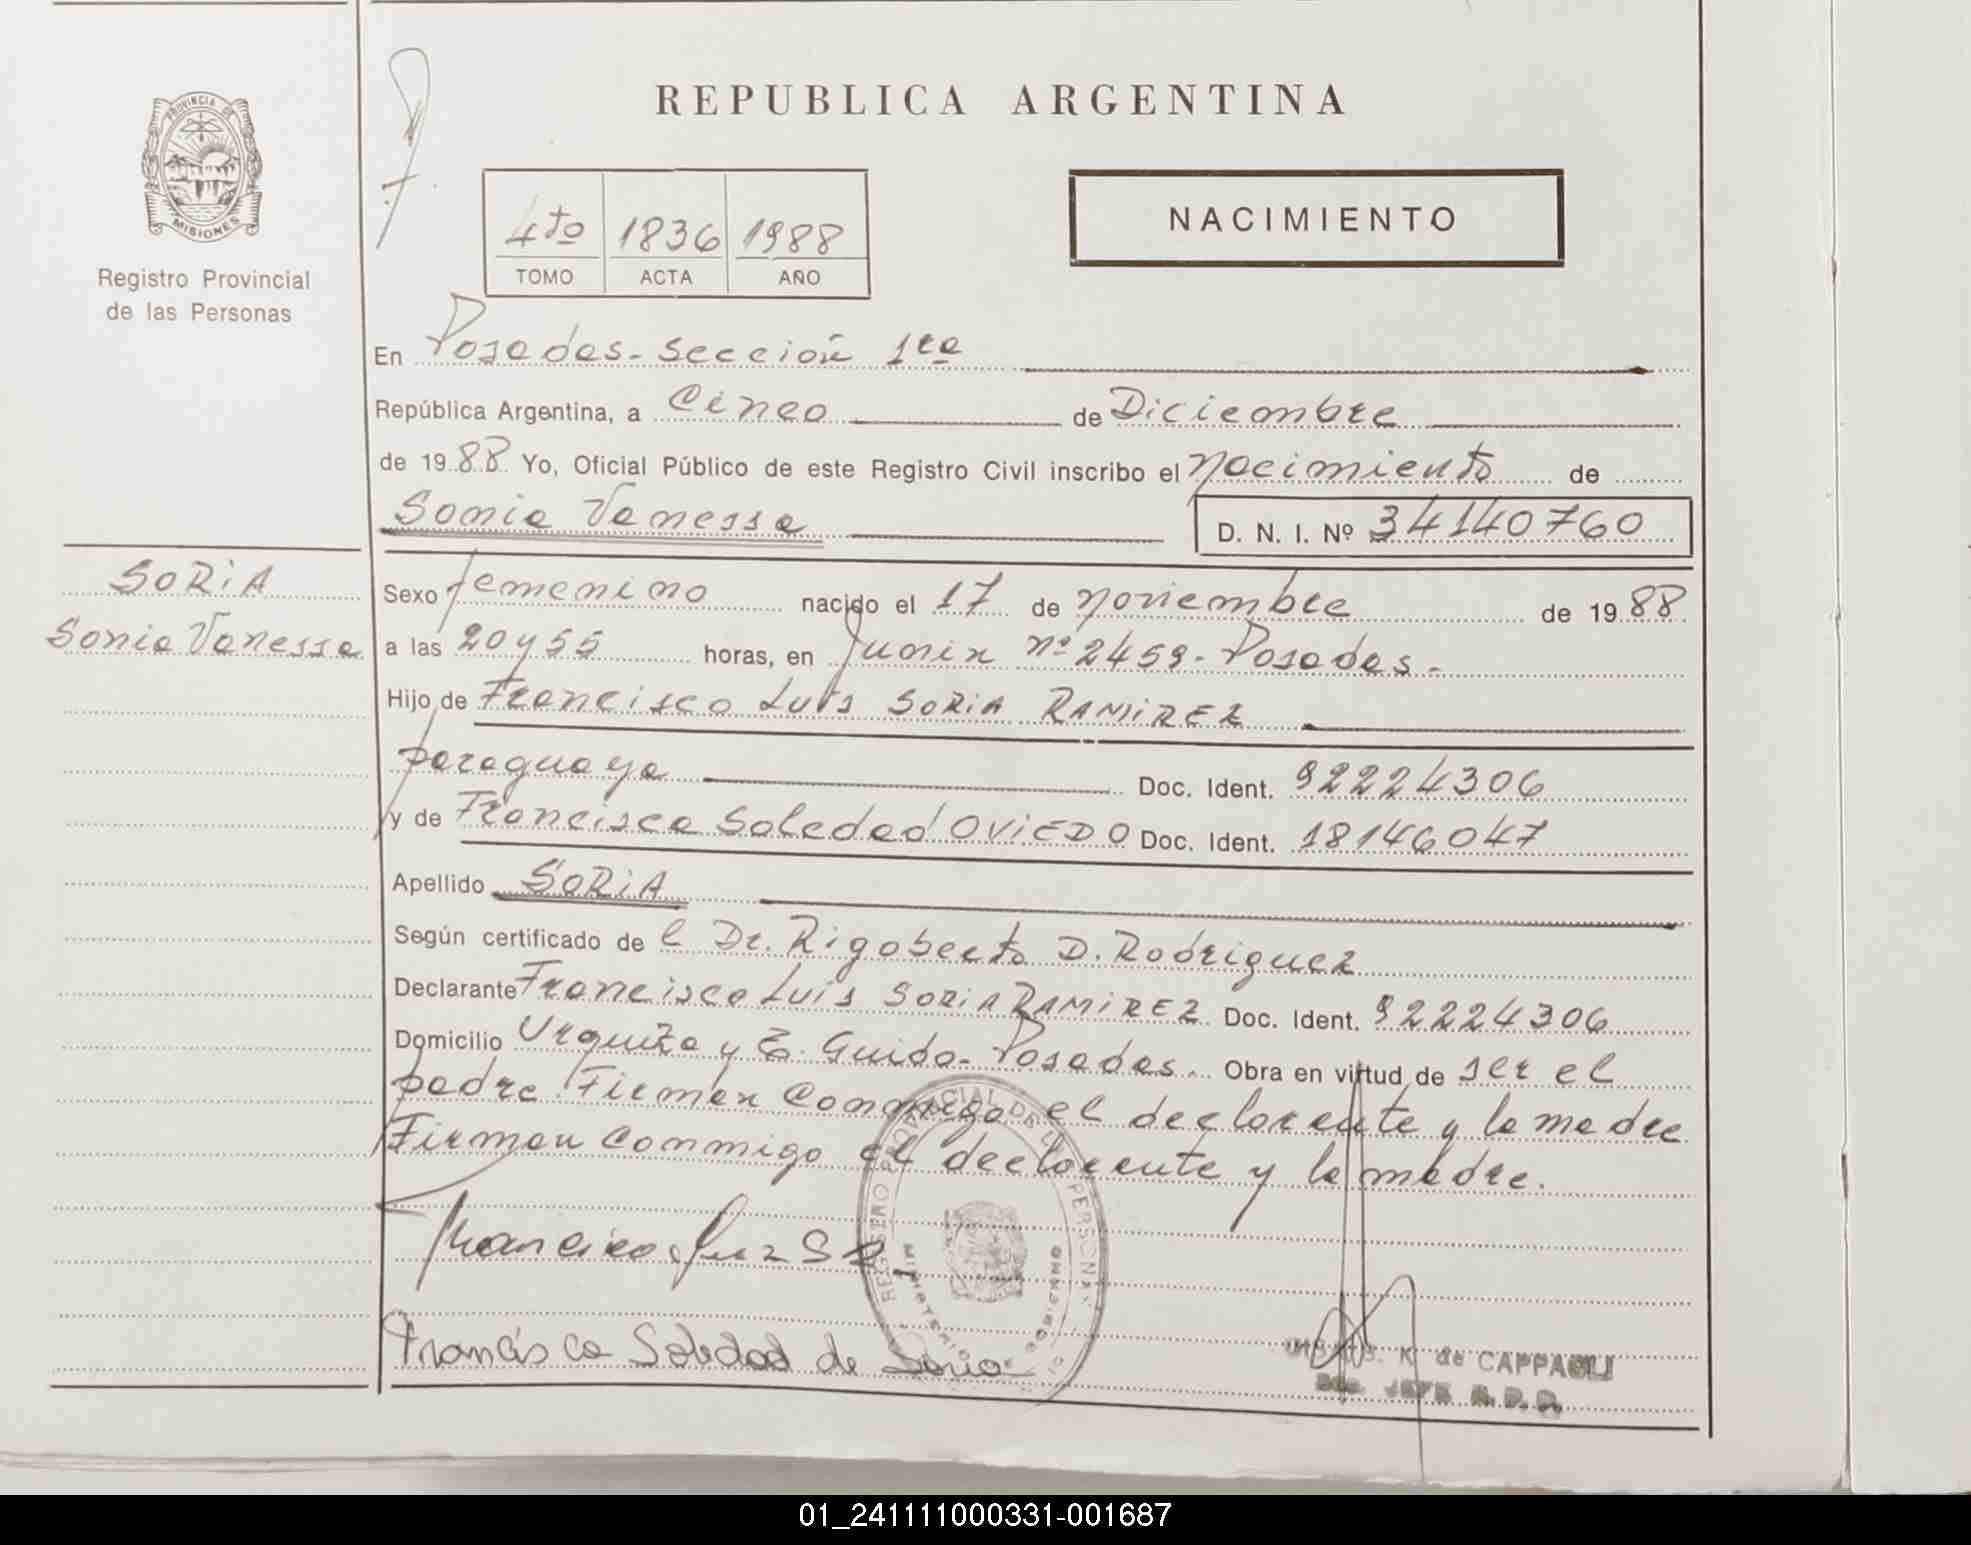 PROVINCIA DE
MISIONES
Registro Provincial
de las Personas
REPUBLICA ARGENTINA
4to 1836 1988
TOMO ACTA AÑO
NACIMIENTO
En Posadas - sección 1ra
República Argentina, a Cinco de Diciembre
de 1988 Yo, Oficial Público de este Registro Civil inscribo el nacimiento de
Sonia Vanessa D. N. I. Nº 34140760
SORIA
Sonia Vanessa
Sexo femenino nacido el 17 de noviembre de 1988
a las 20 y 55 horas, en Junin nº 2459 - Posadas -
Hijo de Francisco Luis SORIA RAMIREZ
paraguaya Doc. Ident. 92224306
y de Francisca Soledad OVIEDO Doc. Ident. 18146047
Apellido SORIA
Según certificado de l Dr. Rigoberto D. Rodriguez
Declarante Francisco Luis SORIA RAMIREZ Doc. Ident. 92224306
Domicilio Urquiza y T. Guido - Posadas. Obra en virtud de ser el
padre. Firman conmigo el declarante y la madre
Firman conmigo el declarante y la madre.
Francisco Luiz S R
Francisca Soledad de Soria
REGISTRO PROVINCIAL DE LAS PERSONAS
MINISTERIO DE GOBIERNO
K. de CAPPAGLI
JEFE R. P. P.
01_241111000331-001687